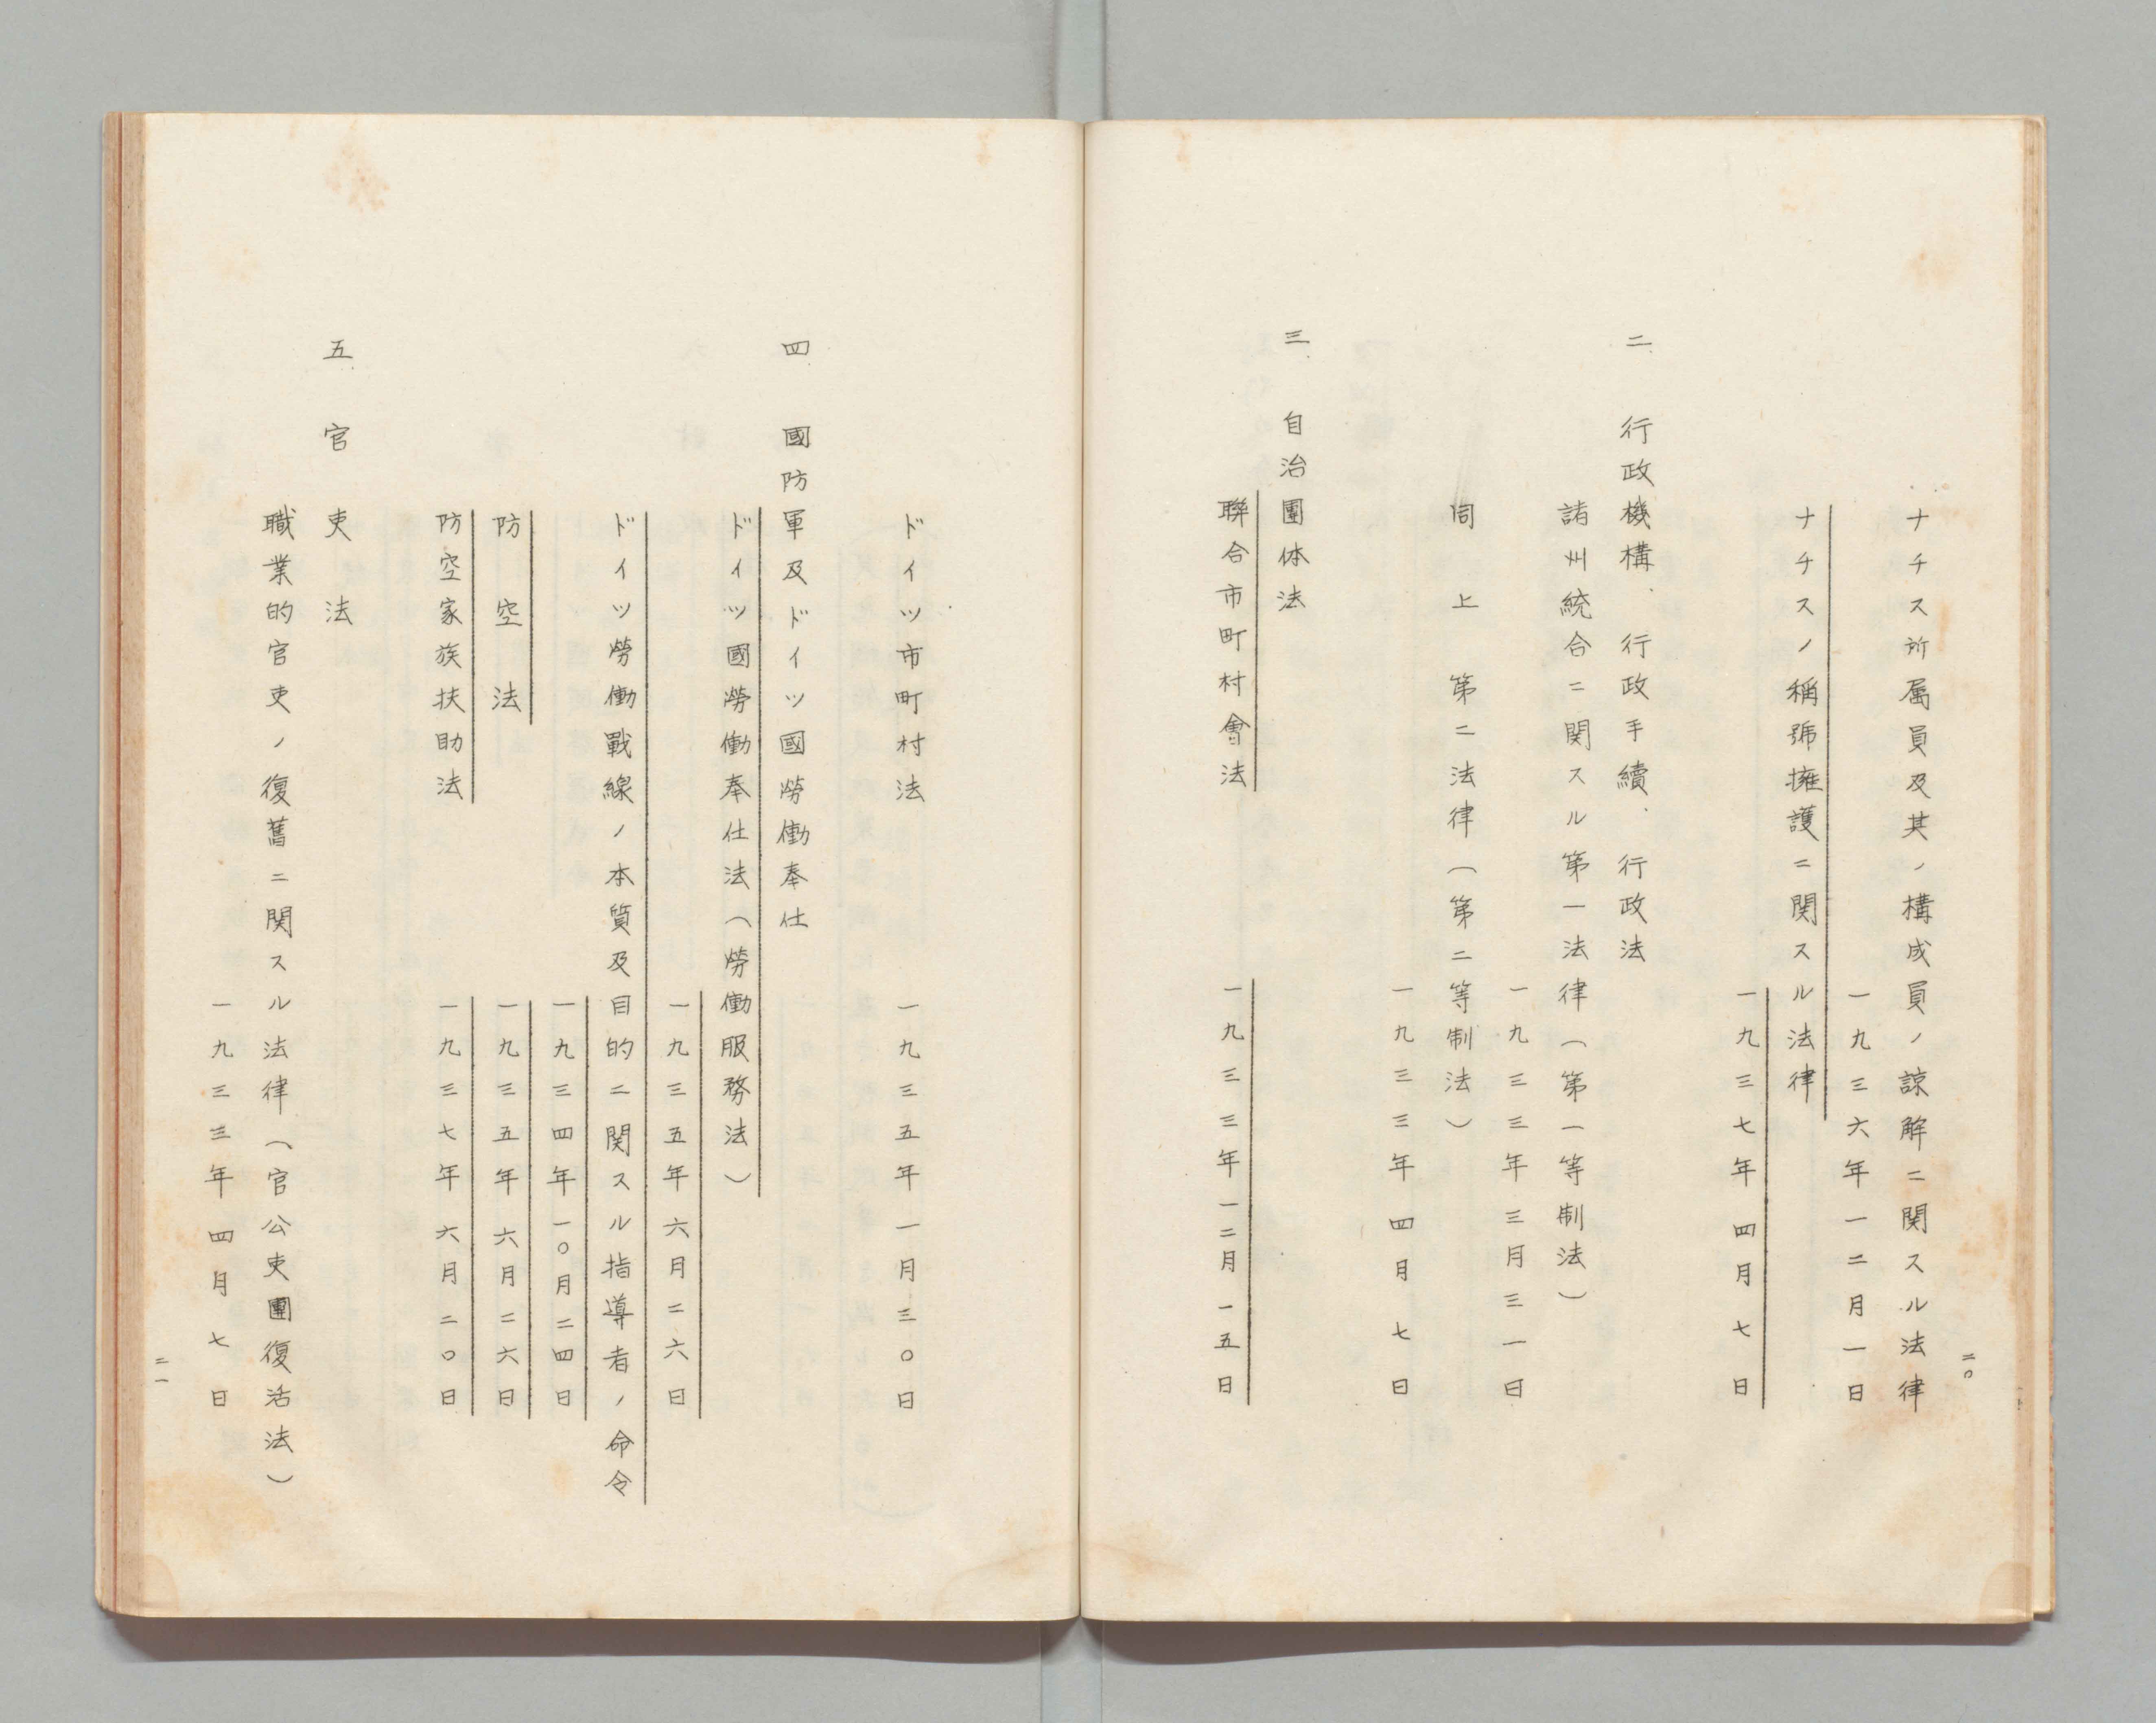 二〇
ナチス所属員及其ノ構成員ノ諒解ニ関スル法律
一九三六年一二月一日
ナチスノ稱號擁護ニ関スル法律
一九三七年四月七日
二、行政機構、行政手續、行政法
諸州統合ニ関スル第一法律（第一等制法）
一九三三年三月三一日
同上 第二法律（第二等制法）
一九三三年四月七日
三、自治團体法
聯合市町村會法
一九三三年一二月一五日
ドイツ市町村法
一九三五年一月三〇日
四 國防軍及ドイツ國勞働奉仕
ドイツ國勞働奉仕法（勞働服務法）
一九三五年六月二六日
ドイツ勞働戰線ノ本質及目的ニ関スル指導者ノ命令
一九三四年一〇月二四日
防空法
一九三五年六月二六日
防空家族扶助法
一九三七年六月二〇日
五、官吏法
職業的官吏ノ復舊ニ関スル法律（官公吏團復活法）
一九三三年四月七日
二一